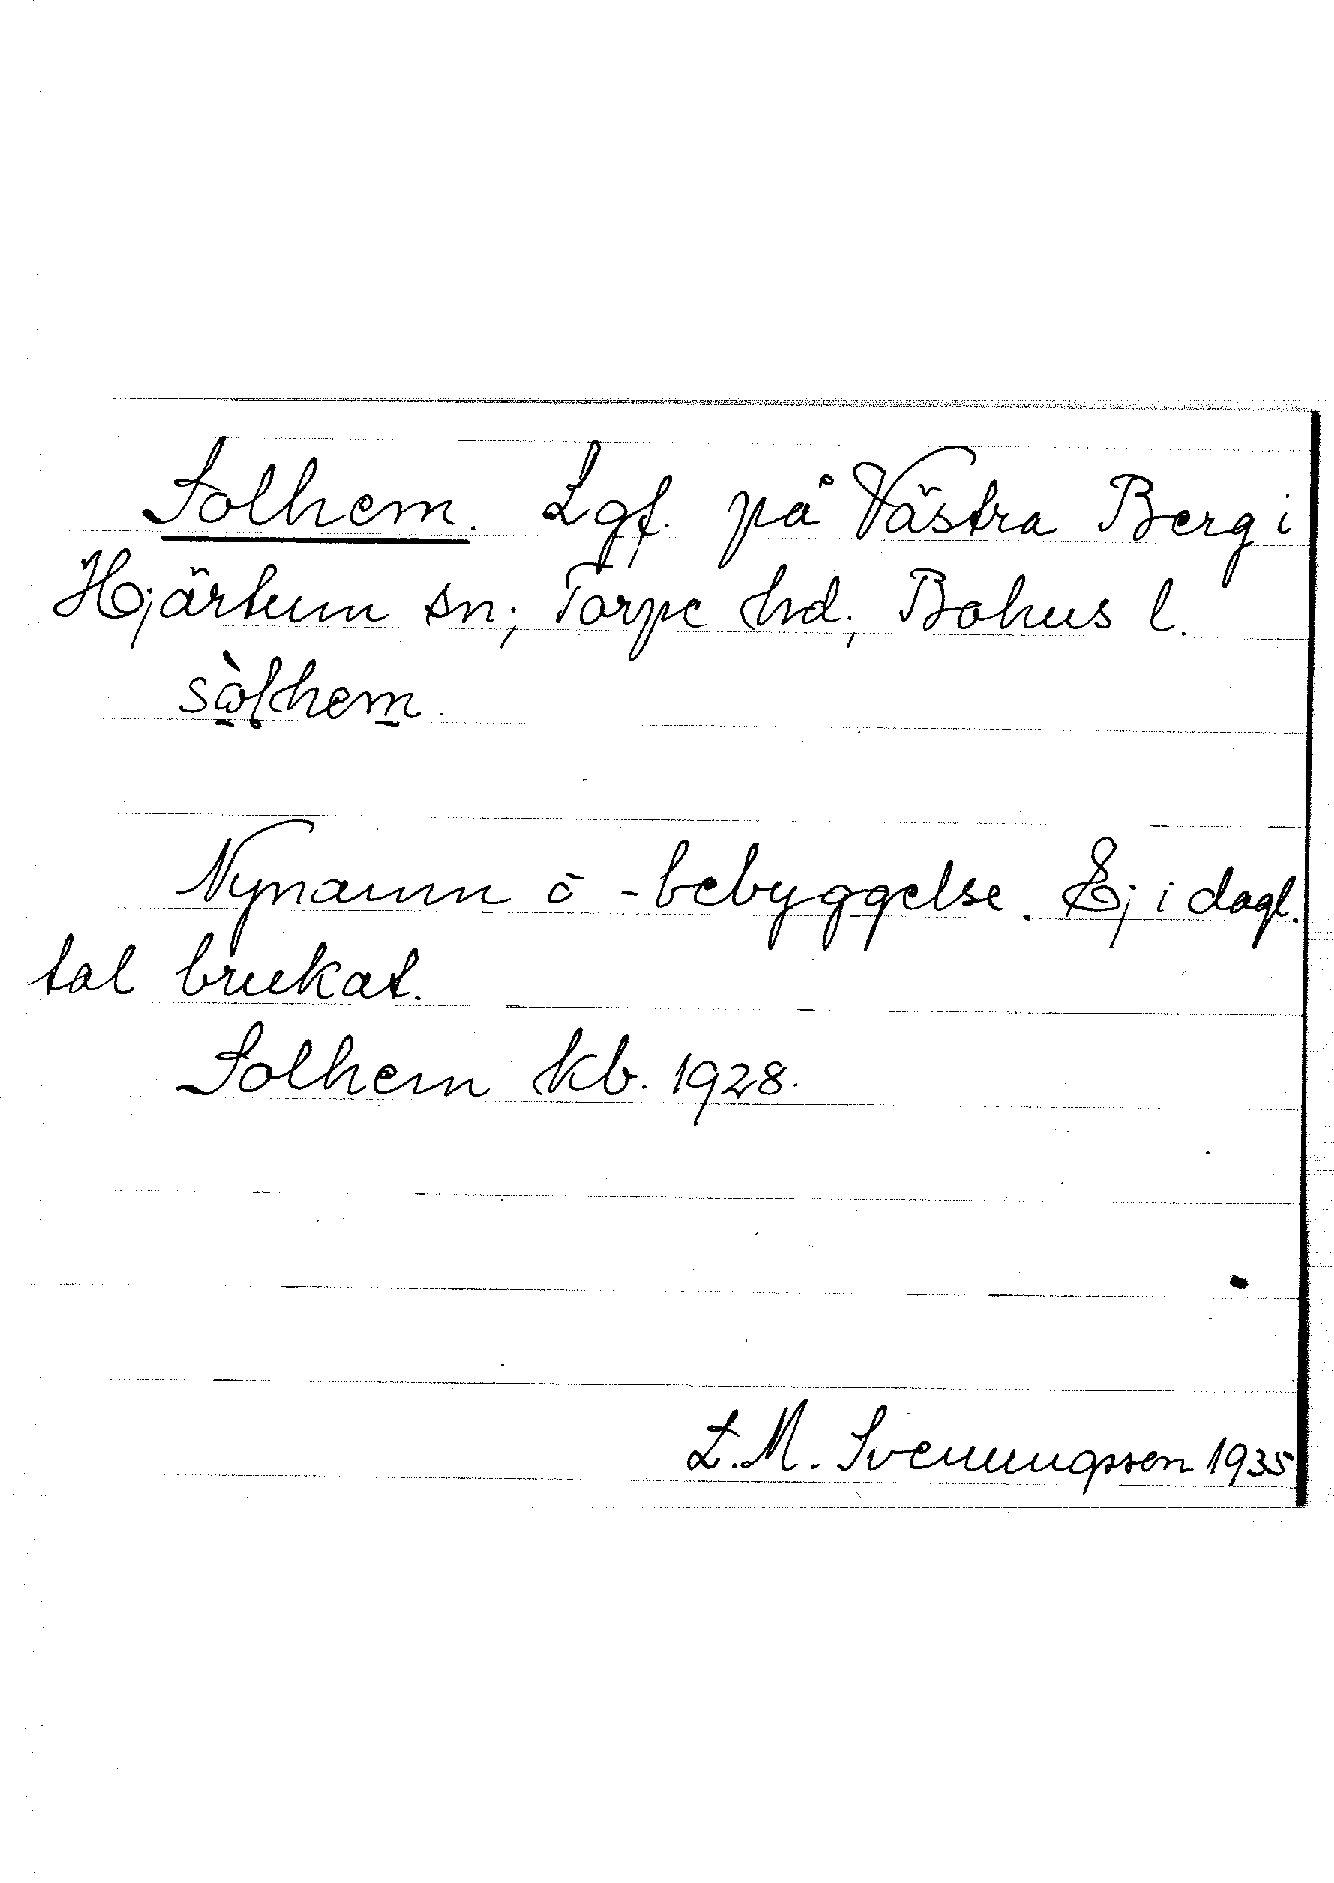 Solhem. Lgf. på Västra Berg i
Hjärtum sn; Torpe hd; Bohus l.
sòlhem.
Nynamn o -bebyggelse. Ej i dagl.
tal brukat.
Solhem kb. 1928.
L. M. Svenungsson 1935